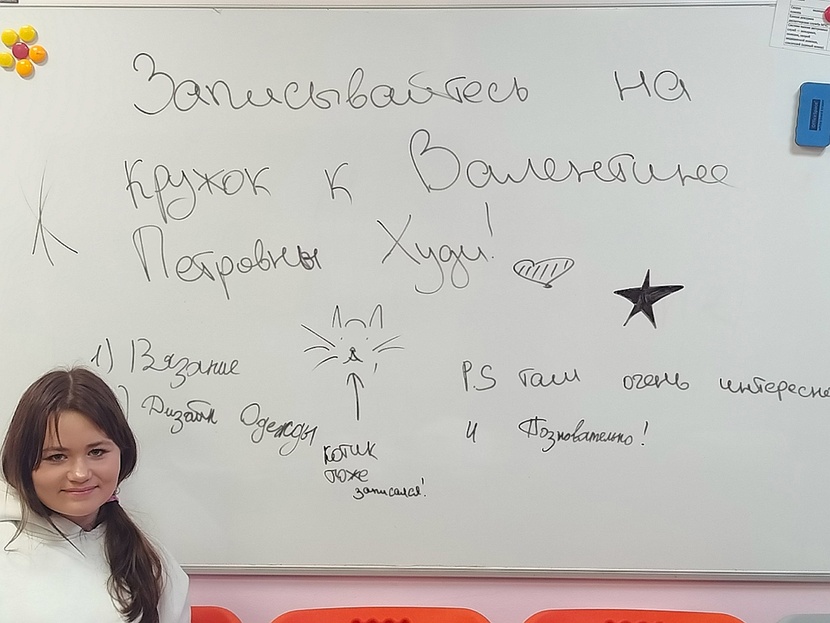 Записывайтесь на
кружок к Валентине
Петровны Худи!
1) Вязание
) Дизайн Одежды
котик
тоже
записался!
P.S там очень интересно
и Позновательно!